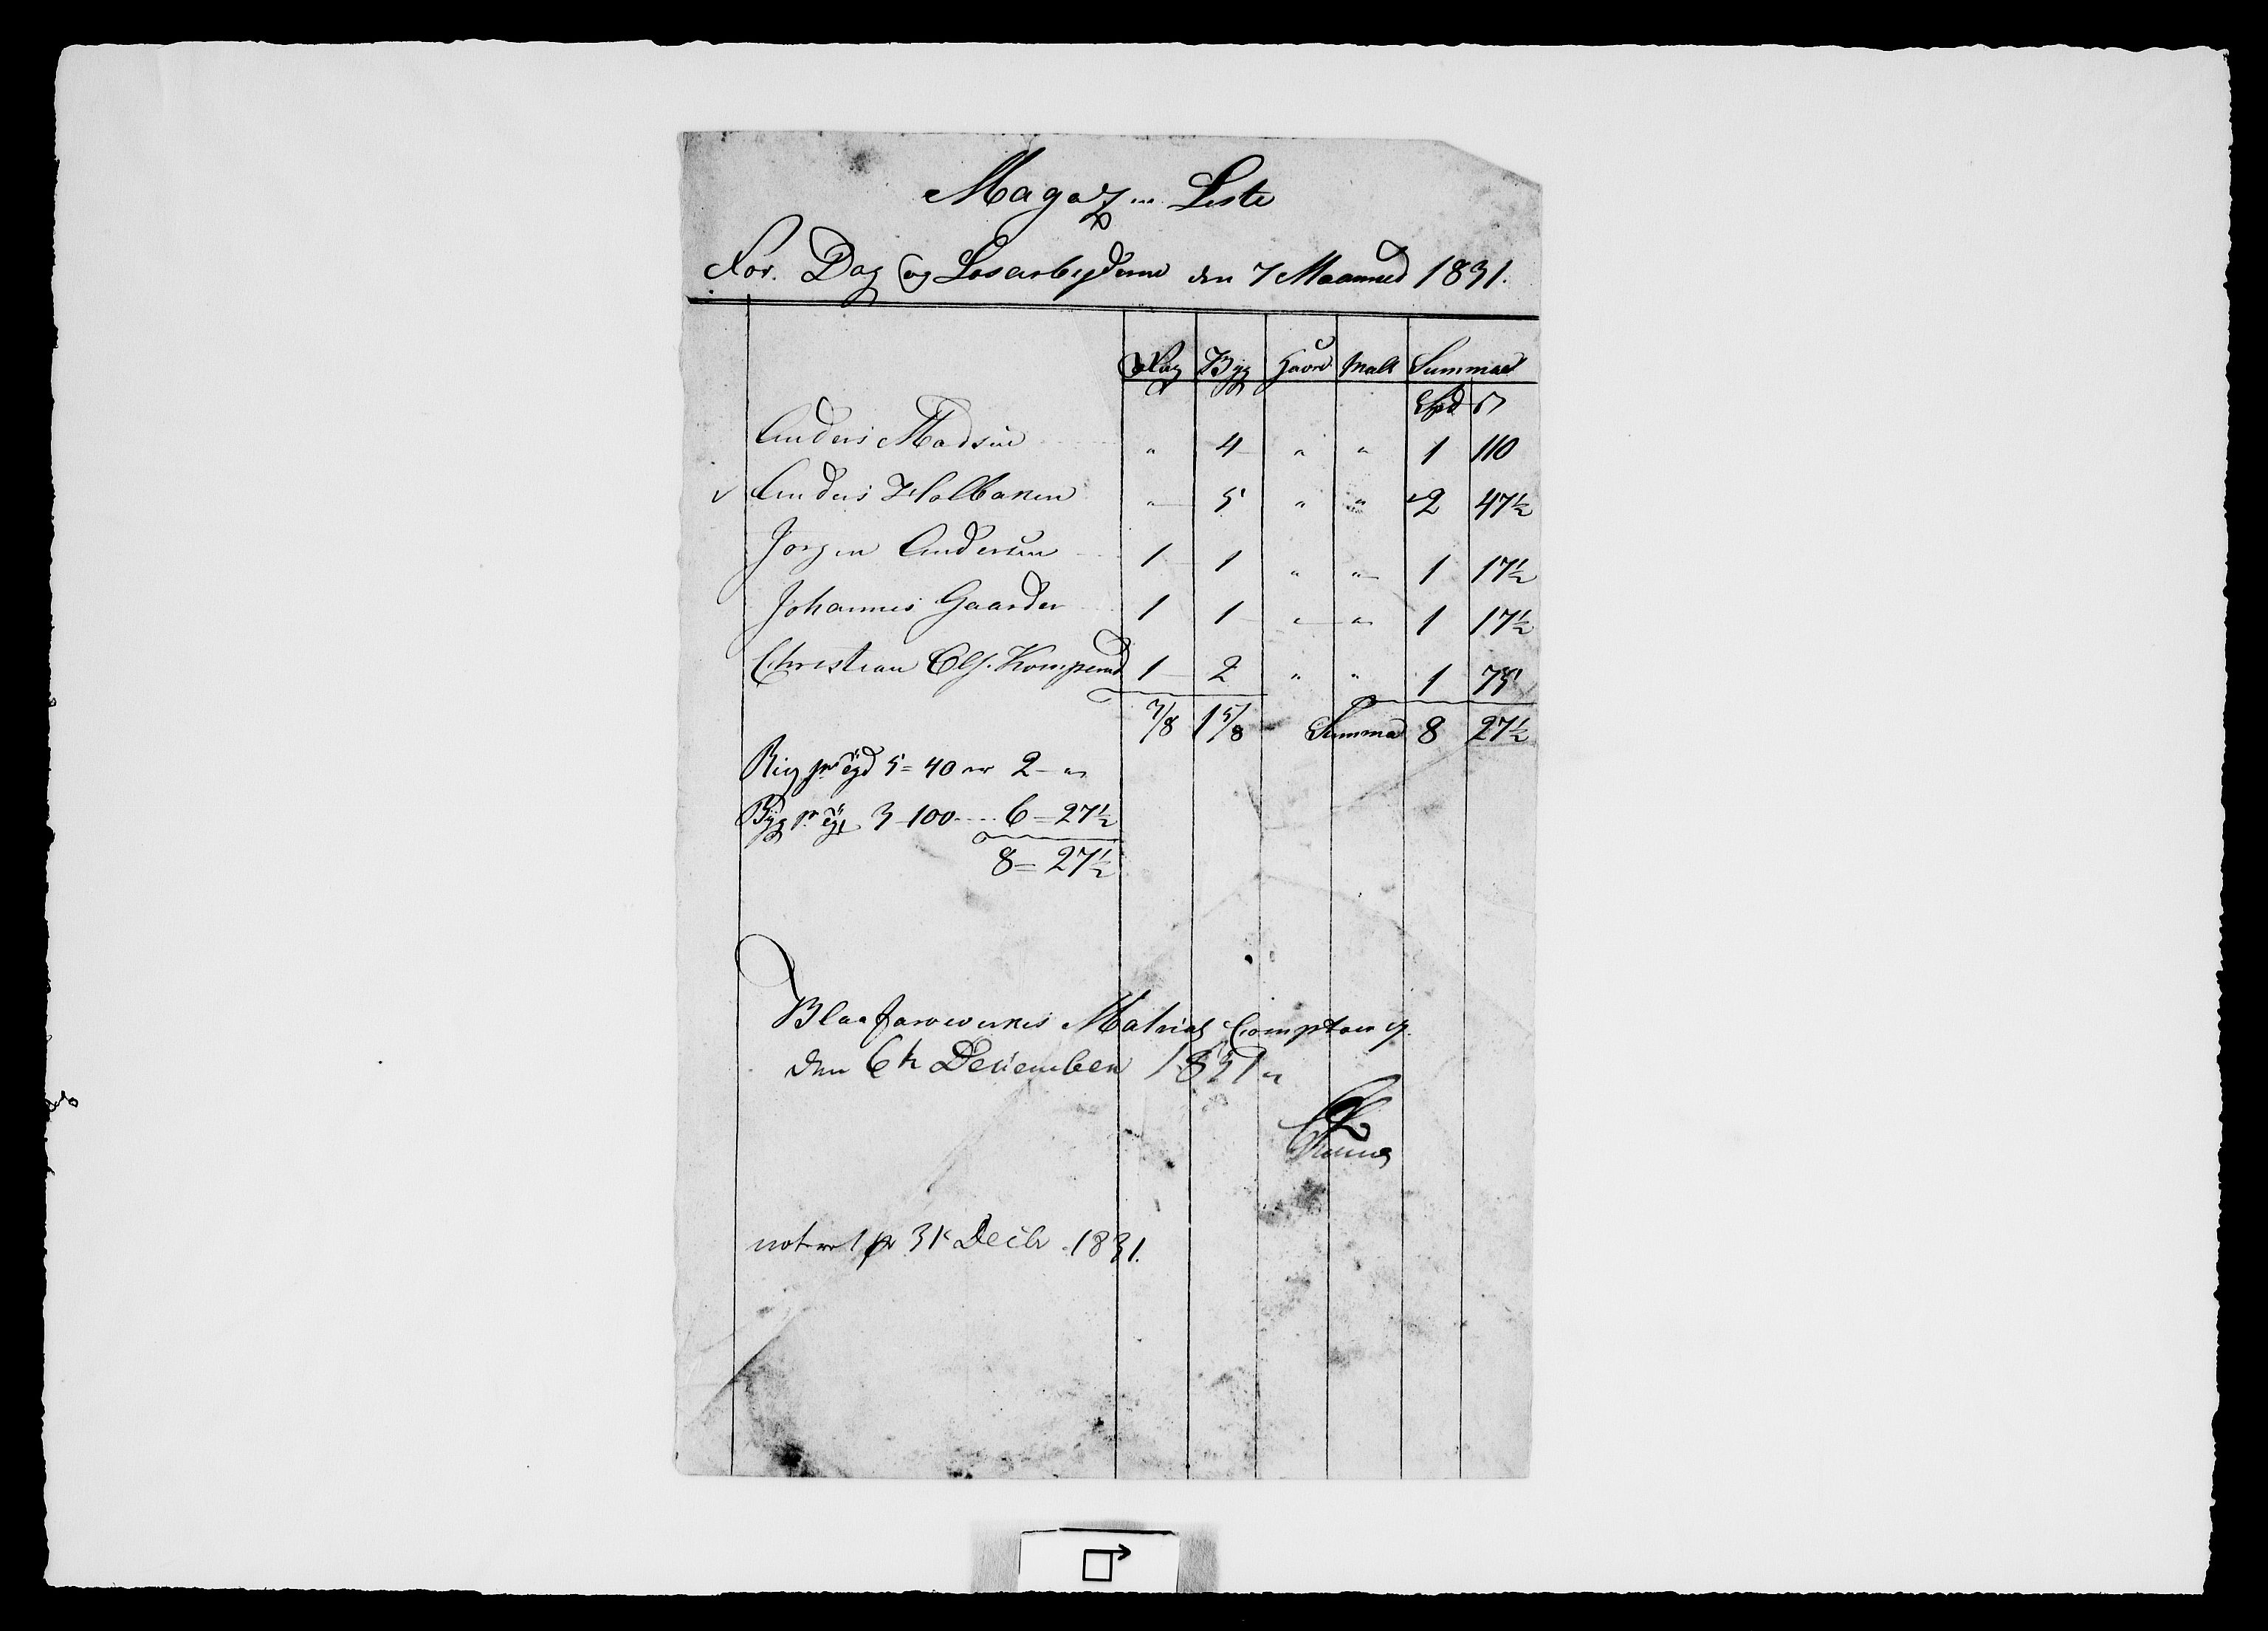 Magazin Liste
for Dag og Løsarbejderne den 7 Maaned 1831.
Rug Byg Havre Malt Summa
Spd ß
Anders Madsen " 4 " " 1 110
✓ Anders Holbaken " 5 " " 2 47½
Jørgen Andersen 1 1 " " 1 17½
Johannes Gaarder 1 1 " " 1 17½
Christian Ols. 1 2 " " 1 75
3/8 1 5/8 Summa 8 27½
Rug pr 5 = 40 er 2 - "
Byg pr 3 - 100 .... 6 = 27½
8 = 27½
Blaafarveværkets Materialcomptoir
den 6te December 1831
noteret pr 31te Decbr. 1831.